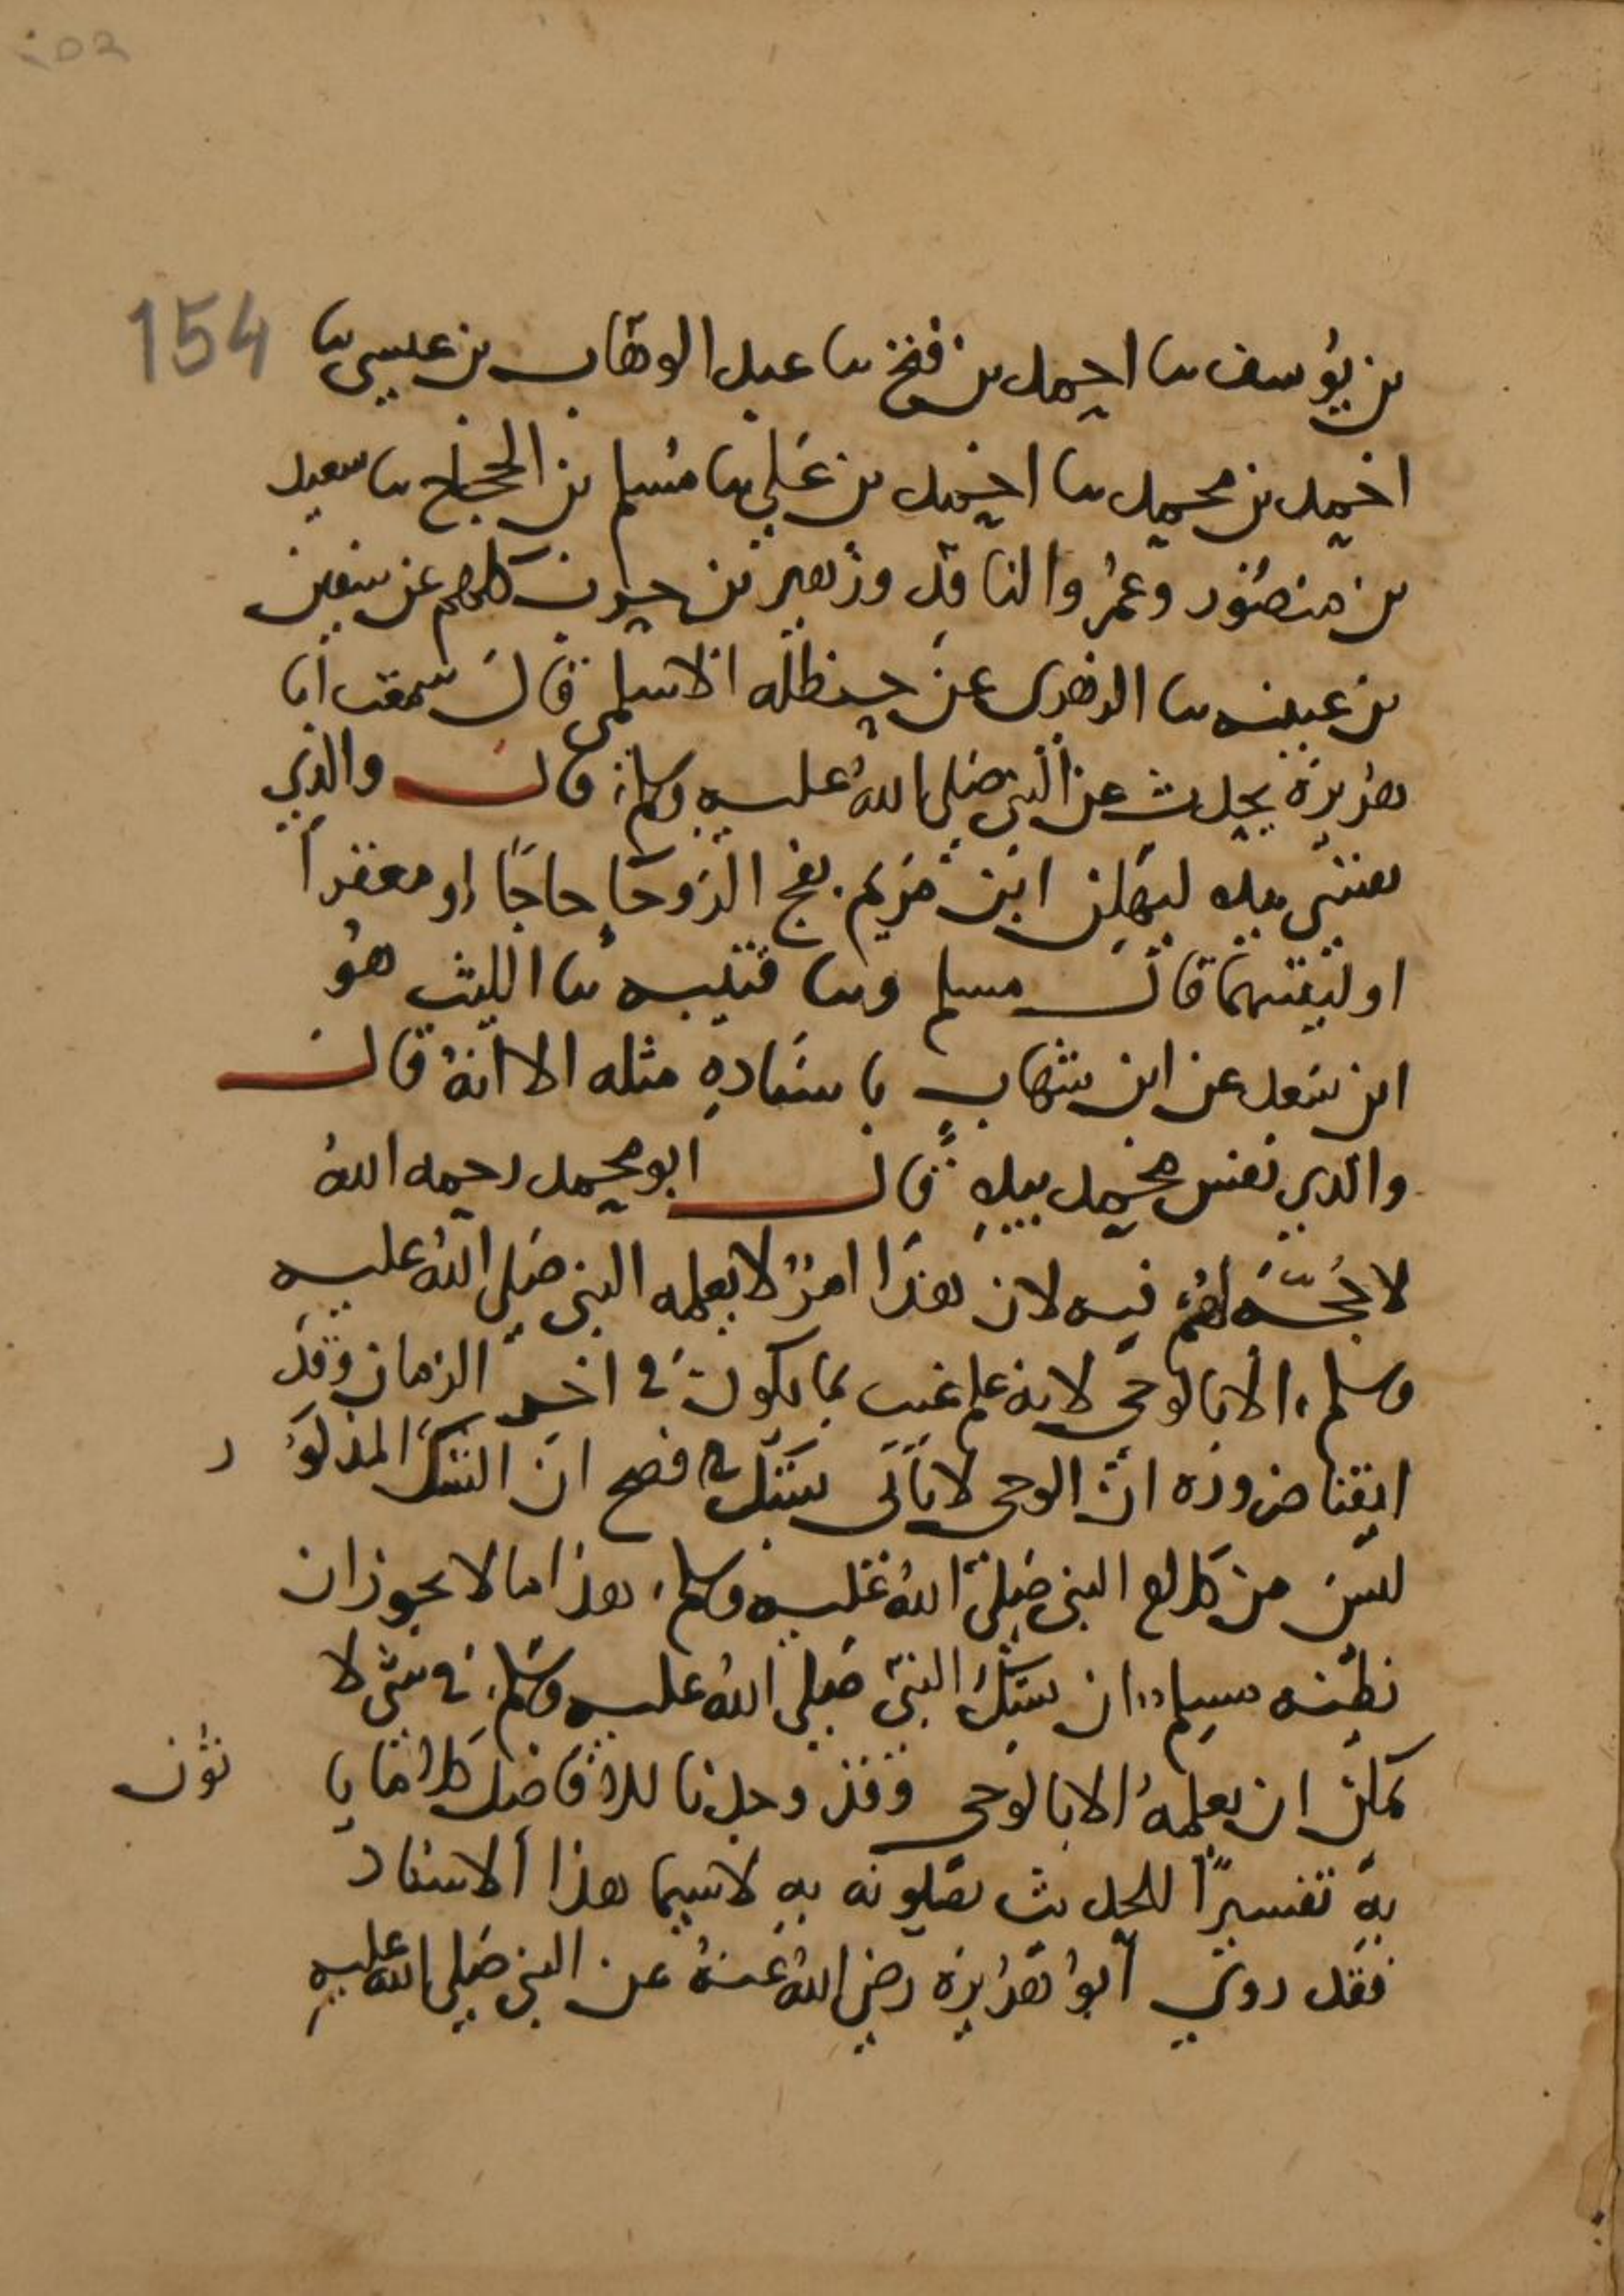 154
بن يُوسف نا احمد بن فتح نا عبد الوهاب بن عيسى نا
احمد بن محمد نا احمد بن علي نا مسلم بن الحجاج نا سعيد
بن منصُور وعمرُو الناقد وزهير بن حرب كلهم عن سفين
بن عيينه نا الزهرى عن حنظله الاسلمى قال سمعت أبا
هُريرَة يحدث عن النبي صَلى اللهُ عليه وسلم قال والذي
نفسي بيده ليهلن ابن مَريم بفج الرَوحَا حاجًا او معتمراً
او ليثنينهما قال مسلم ونا قتيبه نا الليث هُو
ابن سَعد عن ابن شهابٍ باسنَادهِ مثله الا انهُ قال
والذي نفس محمد بيدهِ قال ابو محمد رحمه اللهُ
لا حُجّة لهُم فيه لان هذا امرٌ لا يعلمه النبى صَلى اللهُ عليه
وسلم الا بالوحى لانه علم غيب بما يكون في اخر الزمان وقد
ايقنا ضروره انَّ الوحى لا يأتى بشك فصح ان الشك المذكوُر
ليسَ من كلام النبى صَلى اللهُ عَليه وسلم هذا ما لا يجوز ان
نظُنه مسلم ان يشكَّ النبىّ صَلى اللهُ عليه وسَلم في شى لا
يمكن ان يعلمهُ الا بالوَحى وقد وجدنا للافاضل كلاما ياتُون
بهِ تفسيرًا للحديث يصلونه بهِ لاسيما هذا الاسناد
فقد روي أبُو هُريرَة رضي اللهُ عنهُ عن النبي صَلى الله عليه